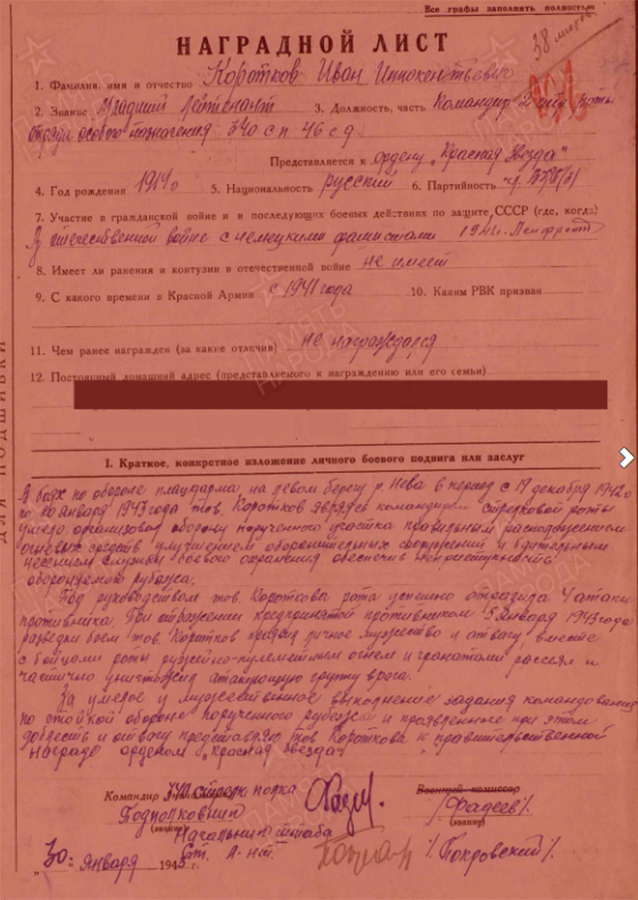 Все графы заполнять полностью
38 листов
НАГРАДНОЙ ЛИСТ
1. Фамилия, имя и отчество Коротков Иван Иннокентьевич
2. Звание Младший Лейтенант 3. Должность, часть Командир 2 роты
отряда особого назначения 340 с п 46 с д.
Представляется к ордену „Красная Звезда"
4. Год рождения 1914о 5. Национальность русский 6. Партийность ВКП(б)
7. Участие в гражданской войне и в последующих боевых действиях по защите СССР (где, когда)
В отечественной войне с немецкими фашистами 1942г. Ленфронт
8. Имеет ли ранения и контузии в отечественной войне не имеет
9. С какого времени в Красной Армии с 1941 года 10. Каким РВК призван
11. Чем ранее награжден (за какие отличия) не награждался
12. Постоянный домашний адрес (представляемого к награждению или его семьи)
ДЛЯ ПОДШИВКИ
I. Краткое, конкретное изложение личного боевого подвига или заслуг
В боях по обороне плацдарма на левом берегу р. Нева в период с 17 декабря 1942г
по января 1943 года тов. Коротков являясь командиром стрелковой роты
умело организовал оборону порученного участка правильным расположением
огневых средств улучшением оборонительных сооружений и бдительным
несением службы боевого охранения обеспечив неприступность
обороняемого рубежа.
Под руководством тов. Короткова рота успешно отразила 4 атаки
противника. При отражении предпринятой противником 5 января 1943 года
разведки боем тов. Коротков проявил личное мужество и отвагу, вместе
с бойцами роты ружейно-пулеметным огнем и гранатами рассеял и
частично уничтожил атакующую группу врага.
За умелое и мужественное выполнение задания командования
по стойкой обороне порученного рубежа и проявленные при этом
доблесть и отвагу представляю тов Короткова к правительственной
награде орденом „Красная звезда"
Командир 340 стрелк полка Военный комиссар
Подполковник /Фадеев/.
(звание) (звание)
Начальник штаба
„30" января 1943 г. Ст. л-нт. /Покровский/.
ПАМЯТЬ
НАРОДА